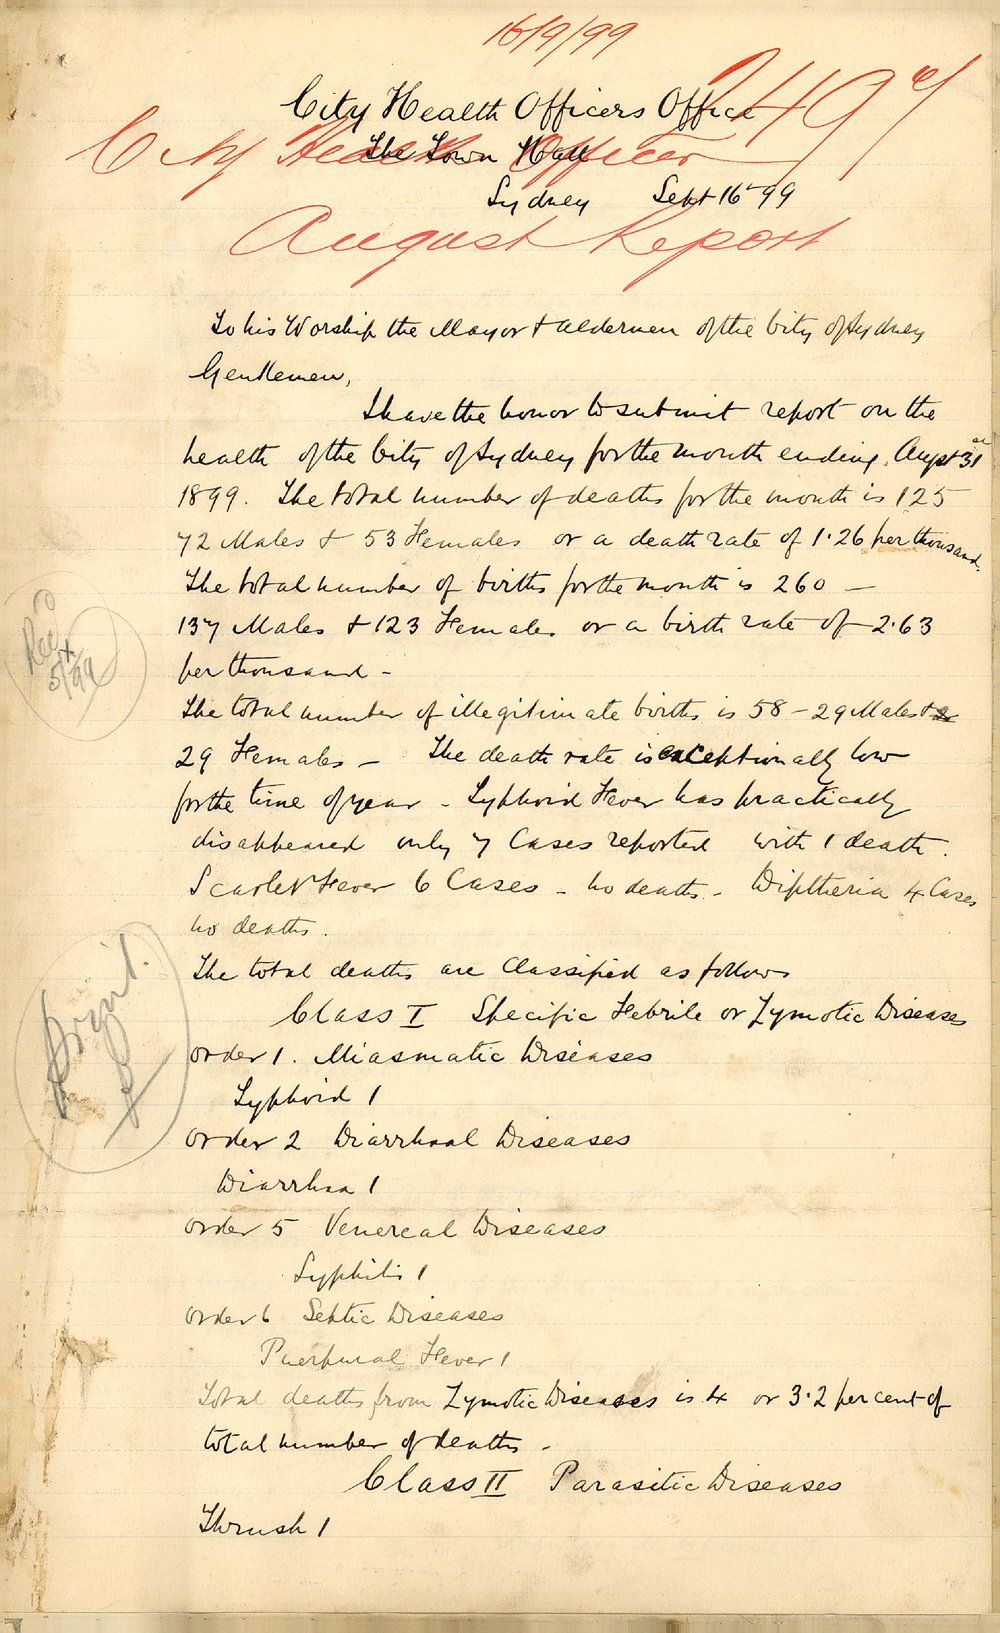 16/9/99
City Health Officers Office
The Town Hall
City Health Officer
Sydney Sept 16 99
August Report
To his Worship the Mayor & Aldermen of the City of Sydney
Gentlemen,
I have the honor to submit report on the
health of the City of Sydney for the month ending August 31
1899. The total number of deaths for the month is 125
72 Males & 53 Females or a death rate of 1.26 per thousand.
The total number of births for the month is 260 –
137 Males & 123 Females or a birth rate of 2.63
per thousand –
The total number of illegitimate births is 58 – 29 Males &
29 Females – The death rate is exceptionally low
for the time of year – Typhoid Fever has practically
disappeared only 7 Cases reported with 1 death.
Scarlet Fever 6 Cases – no deaths – Diptheria 4 Cases
no deaths.
The total deaths are Classified as follows
Class I Specific Febrile or Zymotic Diseases
Order 1. Miasmatic Diseases
Typhoid 1
Order 2 Diarrhoeal Diseases
Diarrhoea 1
Order 5 Venereal Diseases
Syphilis 1
Order 6 Septic Diseases
Puerpural Fever 1
Total deaths from Zymotic Diseases is 4 or 3.2 per cent of
total number of deaths –
Class II Parasitic Diseases
Thrush 1
Rec
5/X/99